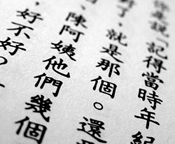 你說記得當時年紀
，就是那個。還
陳阿姨他們幾個
好不好？